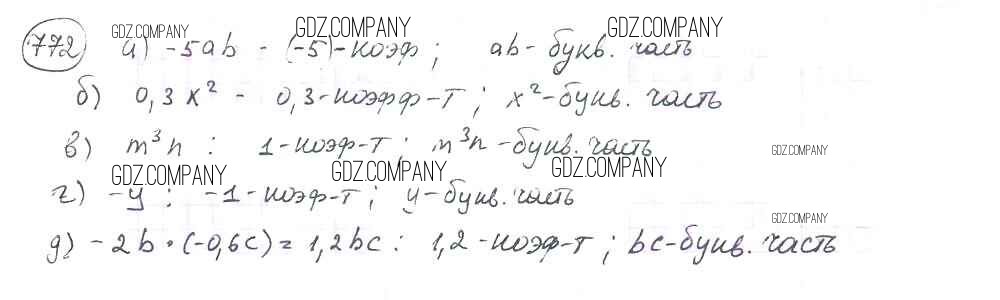 GDZ.COMPANY GDZ.COMPANY GDZ.COMPANY
772 а) -5ab - (-5)-коэф; ab- букв. часть
б) 0,3x² - 0,3-коэфф-т; x²-букв. часть
в) m³n : 1-коэф-т; m³n-букв. часть GDZ.COMPANY
GDZ.COMPANY GDZ.COMPANY GDZ.COMPANY
г) -y : -1-коэф-т; y-букв. часть
GDZ.COMPANY
д) -2b·(-0,6c)=1,2bc : 1,2-коэф-т; bc-букв. часть